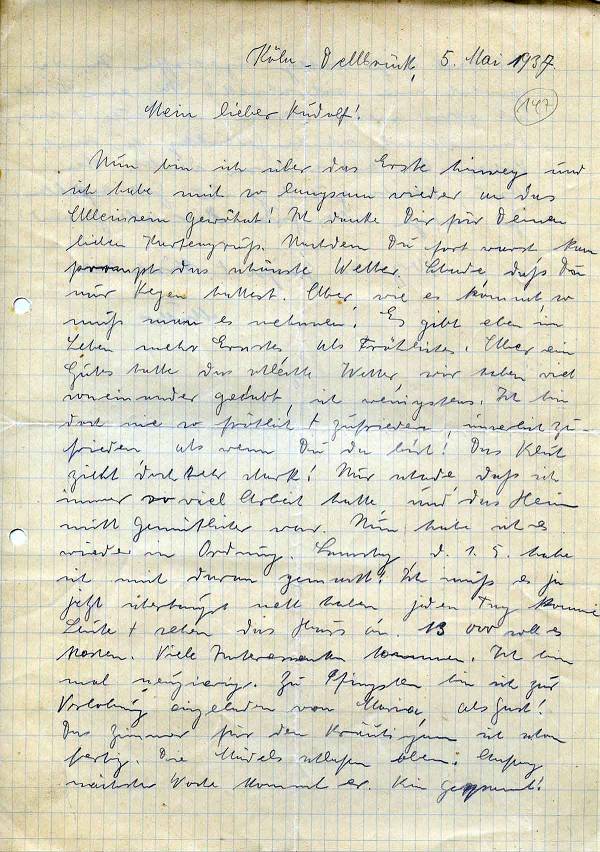 Köln-Dellbrück, 5. Mai 1937.
147
Mein lieber Rudolf!
Nun bin ich über das Erste hinweg und
ich habe mich so langsam wieder an das
Alleinsein gewöhnt! Ich danke Dir für Deinen
lieben Kartengruß. Nachdem Du fort warst kam
prompt das schönste Wetter. Schade, daß Du
nur Regen hattest. Aber wie es kommt, so
muß man es nehmen! Es gibt eben im
Leben mehr Ernstes als Fröhliches. Aber ein
Gutes hatte das schlechte Wetter, wir haben viel
voneinander gehabt, ich wenigstens. Ich bin
doch nie so fröhlich + zufrieden, innerlich zu-
frieden als wenn Du da bist! Das Blut
zieht doch sehr stark! Nur schade, daß ich
immer so viel Arbeit hatte, und das Heim
nicht gemütlicher war. Nun habe ich es
wieder in Ordnung. Samstag d. 1. 5. habe
ich mich daran gemacht! Ich muß es ja
jetzt überhaupt nett haben, jeden Tag kommen
Leute + sehen das Haus an. 13 000 soll es
kosten. Viele Interessenten kommen. Ich bin
mal neugierig. Zu Pfingsten bin ich zur
Verlobung eingeladen von Maria als Gast!
Das Zimmer für den Bräutigam ist schon
fertig. Die Mädels schlafen oben. Anfang
nächster Woche kommt er. Bin gespannt!